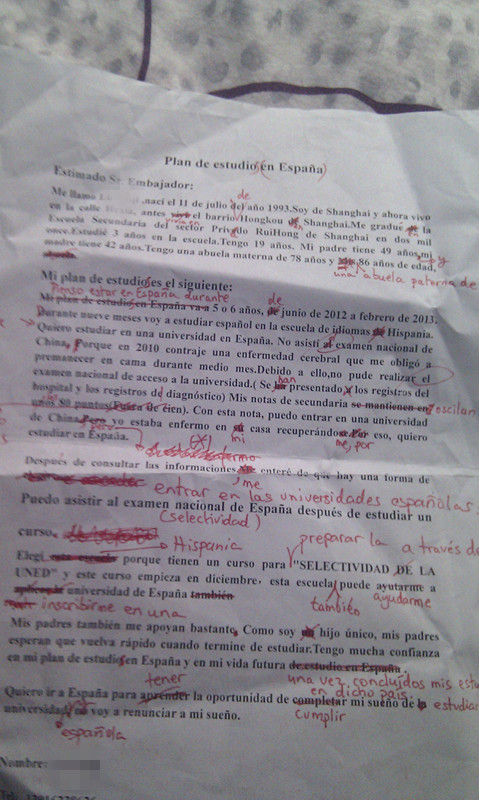 Plan de estudio en España
Estimado Sr Embajador:
Me llamo .nací el 11 de julio del año 1993.Soy de Shanghai y ahora vivo
de
en la calle antes el barrio Hongkou de Shanghai.Me gradué
viví en en
Escuela Secundaria del sector Privado RuiHong de Shanghai en dos mil
once.Estudié 3 años en la escuela.Tengo 19 años. Mi padre tiene 49 años,mi
madre tiene 42 años.Tengo una abuela materna de 78 años y 86 años de edad,
y
una abuela paterna de
Mi plan de estudio es el siguiente:
Pienso estar en España durante de
Mi plan de estudio en España va a 5 o 6 años, de junio de 2012 a febrero de 2013.
Durante nueve meses voy a estudiar español en la escuela de idiomas de Hispania.
Quiero estudiar en una universidad en España. No asistí al examen nacional de
China, Porque en 2010 contraje una enfermedad cerebral que me obligó a
premanecer en cama durante medio mes.Debido a ello,no pude realizar el
examen nacional de acceso a la universidad.( Se presentado los registros del
han
hospital y los registros de diagnóstico) Mis notas de secundaria se mantienen en
oscilan
unos 80 puntos(Fuera de cien). Con esta nota, puedo entrar en una universidad
de China, pero yo estaba enfermo en su casa recuperándose.Por eso, quiero
mi me, por
estudiar en España.
Después de consultar las informaciones, enteré de que hay una forma de
me
entrar en las universidades españolas.
Puedo asistir al examen nacional de España después de estudiar un
(selectividad)
curso.
Hispania preparar la a través de
Elegí porque tienen un curso para "SELECTIVIDAD DE LA
UNED" y este curso empieza en diciembre, esta escuela puede ayutarme a
también ayudarme
universidad de España también
inscribirme en una
Mis padres también me apoyan bastante, Como soy un hijo único, mis padres
esperan que vuelva rápido cuando termine de estudiar.Tengo mucha confianza
en mi plan de estudio en España y en mi vida futura de estudio en España .
tener una vez concluídos mis
en dicho país
Quiero ir a España para aprender la oportunidad de completar mi sueño de la
cumplir estudiar
universidad, no voy a renunciar a mi sueño.
española
Nombre: